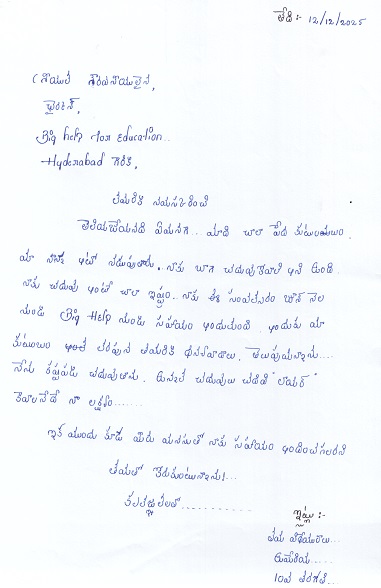 తేది :- 12/12/2025
గౌరవనీయులైన,
చైర్మన్,
Big help for education..
Hyderabad గారికి,
తమరికి నమస్కరించి
తెలియచేయునది ఏమనగా... మాది చాలా పేద కుటుంబం.
మా నాన్న ఆటో నడుపుతారు. నాకు బాగా చదువుకోవాలి అని ఉంది.
నాకు చదువు అంటే చాలా ఇష్టం.. నాకు ఈ సంవత్సరం జూన్ నెల
నుండి Big Help నుండి సహాయం అందుతుంది. అందుకు మా
కుటుంబం అంతా తరపున తమరికి ధన్యవాదాలు. తెలుపుచున్నాను....
నేను కష్టపడి చదువుతాను. ఉన్నత చదువులు చదివి "లాయర్"
కావాలనేదే నా లక్ష్యం.......
ఇక ముందు కూడా మీరు మనసుతో నాకు సహాయం అందించగలరని
కోరుకుంటున్నాను!...
కృతజ్ఞతలతో ...........
ఇట్లు:
మీ విధేయురాలు...
10వ తరగతి..